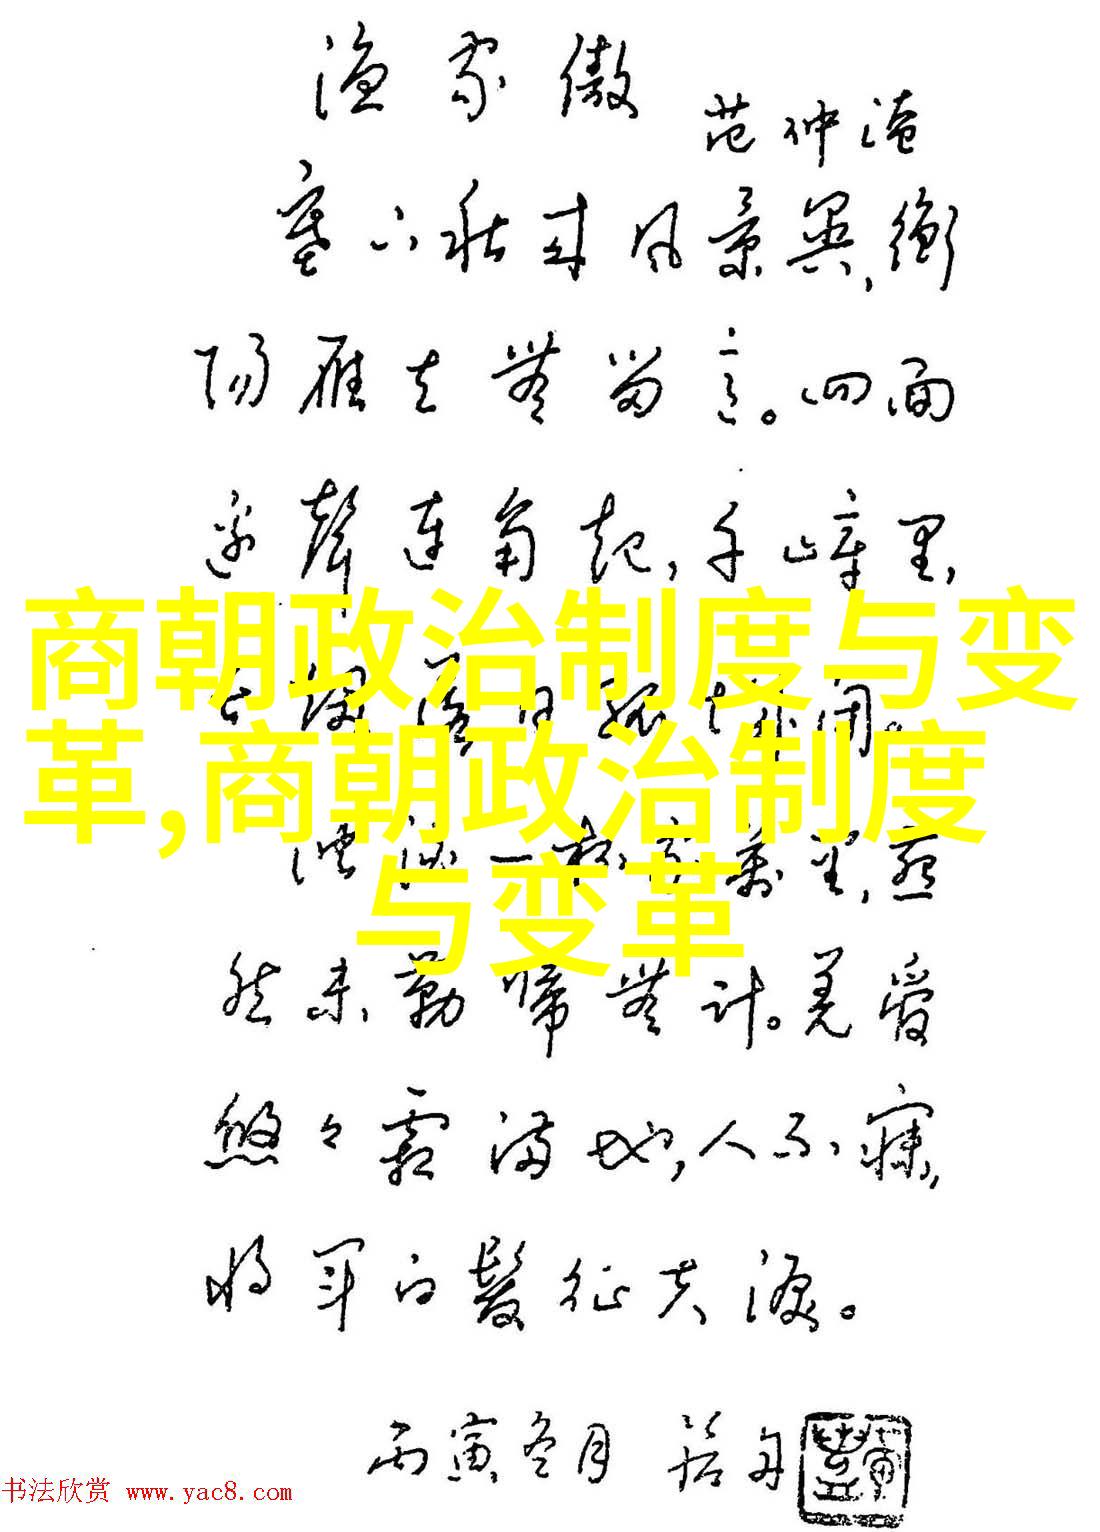 渔家傲
范仲淹
塞下秋来风景异,衡
阳雁去無留意。四面
边聲连角起,千嶂里,
商朝政治制度与变
长烟落日孤城闭。
革,商朝政治制度
浊酒一杯家萬里,燕
与变革
然未勒归無计。羌管
悠々霜满地,人不寐,
将军白髮征夫淚。
丙寅冬月
书法欣赏 www.yac8.com